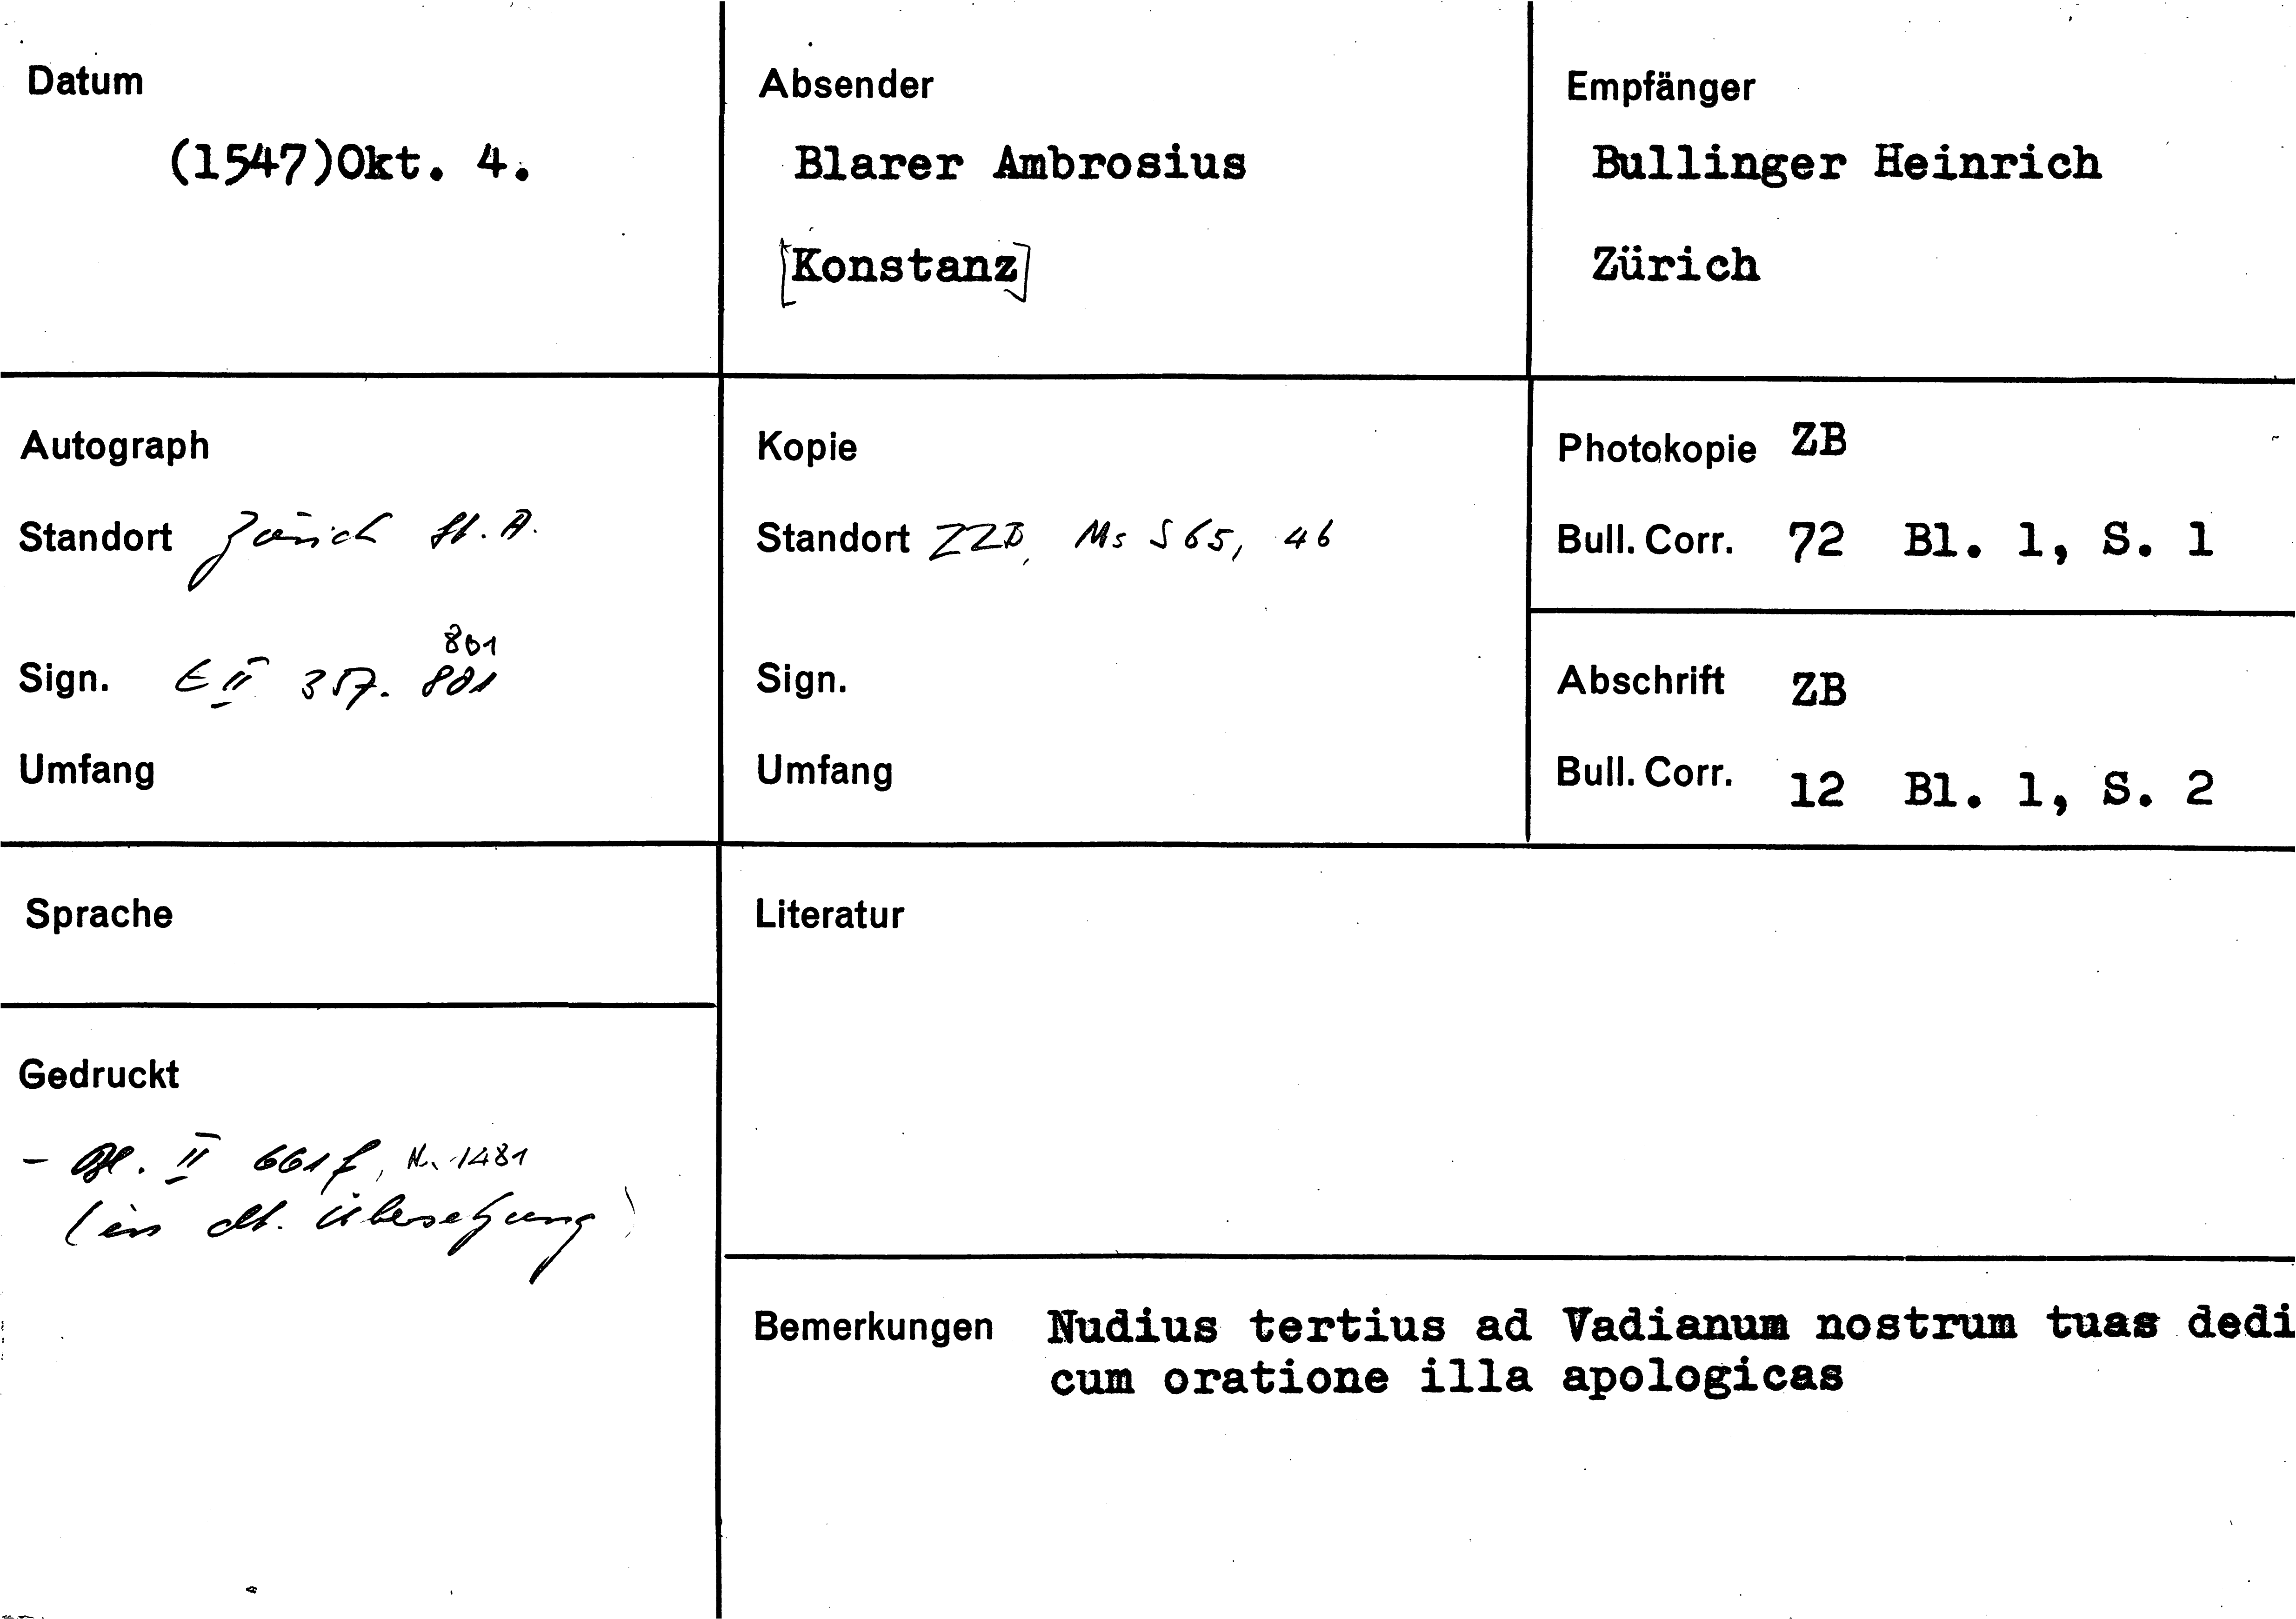 Datum
(1547)Okt. 4.
Absender
Blarer Ambrosius
[Konstanz]
Empfänger
Bullinger Heinrich
Zürich
Autograph
Standort Zürich St. A.
Sign. E II 357. 801
801
Umfang
Kopie
Standort ZZB, Ms S 65, 46
Sign.
Umfang
Photokopie ZB
Bull. Corr. 72 Bl. 1, S. 1
Abschrift ZB
Bull. Corr. 12 Bl. 1, S. 2
Sprache
Gedruckt
- Bl. II 661 f, N. 1481
(in dt. Übersetzung)
Literatur
Bemerkungen Nudius tertius ad Vadianum nostrum tuas dedi
cum oratione illa apologicas